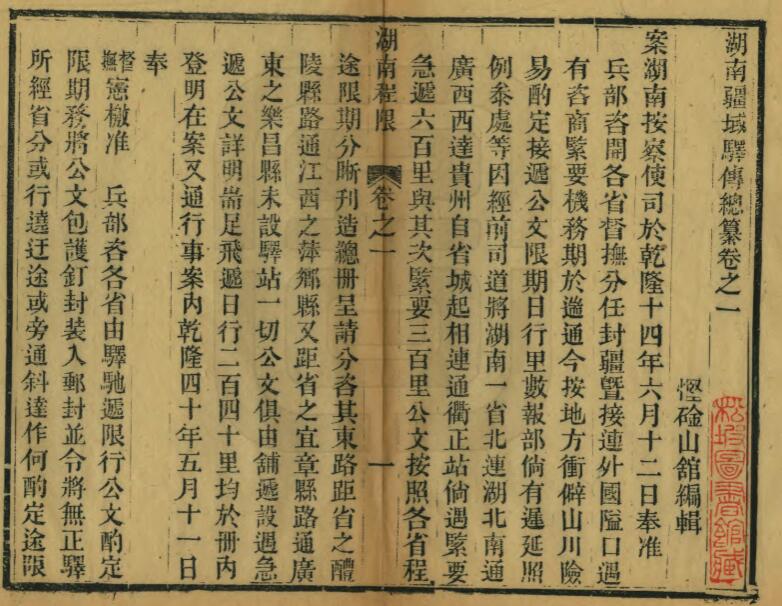 湖南疆域驛傳總纂卷之一
慳硷山舘編輯
案湖南按察使司於乾隆十四年六月十二日奉准
兵部咨開各省督撫分任封疆曁接連外國隘口遇
有咨商緊要機務期於遄通今按地方衝僻山川險
易酌定接遞公文限期日行里數報部倘有遲延照
例叅處等因經前司道將湖南一省北連湖北南通
廣西西達貴州自省城起相連通衢正站倘遇緊要
急遞六百里與其次緊要三百里公文按照各省程
湖南程限 卷之一 一
途限期分晰刋造總冊呈請分咨其東路距省之醴
陵縣路通江西之萍鄉縣又距省之宜章縣路通廣
東之樂昌縣未設驛站一切公文俱由舖遞設遇急
遞公文詳明耑足飛遞日行二百四十里均於冊内
登明在案又通行事案内乾隆四十年五月十一日
奉
督撫憲檄准 兵部咨各省由驛馳遞限行公文酌定
限期務將公文包護釘封装入郵封並令將無正驛
所經省分或行遶迂途或旁通斜達作何酌定途限
松坡圖書館藏